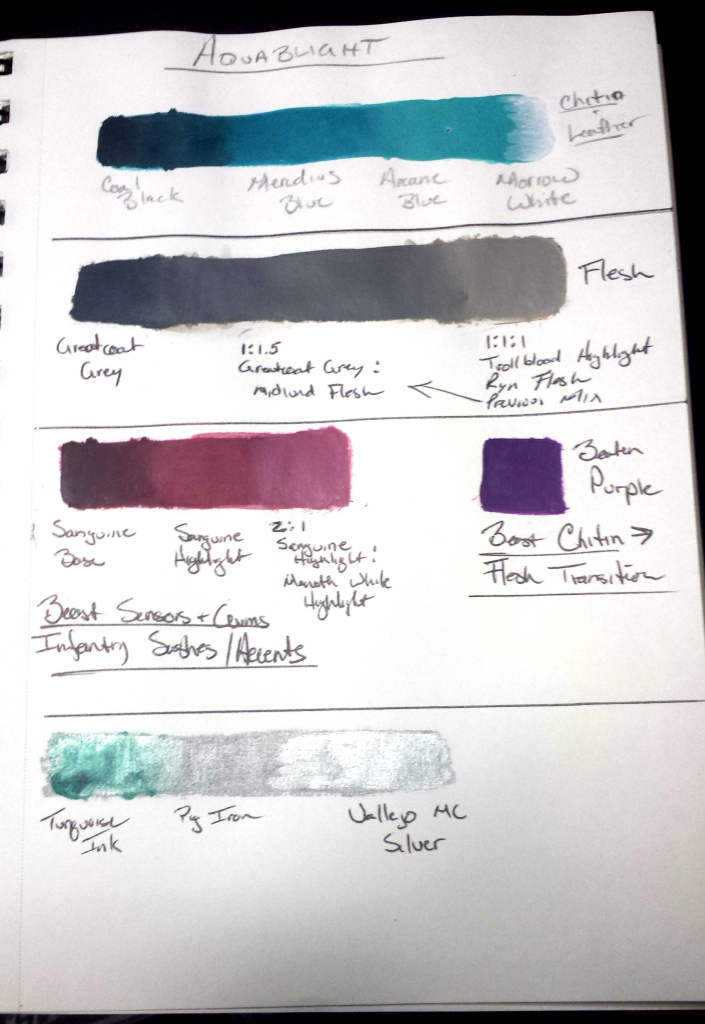 AQUABLIGHT
Chitin
+
Leather
Coal
Black
Meredius
Blue
Arcane
Blue
Morrow
White
Flesh
Greatcoat
Grey
1:1.5
Greatcoat Grey :
Midlund Flesh
1:1:1
Trollblood Highlight
Ryn Flesh
Previous Mix
Sanguine
Base
Sanguine
Highlight
2:1
Sanguine
Highlight :
Menoth White
Highlight
Beaten
Purple
Beast Chitin →
Flesh Transition
Beast Sensors + Gums
Infantry Sashes/Accents
Turquoise
Ink
Pig Iron
Vallejo MC
Silver